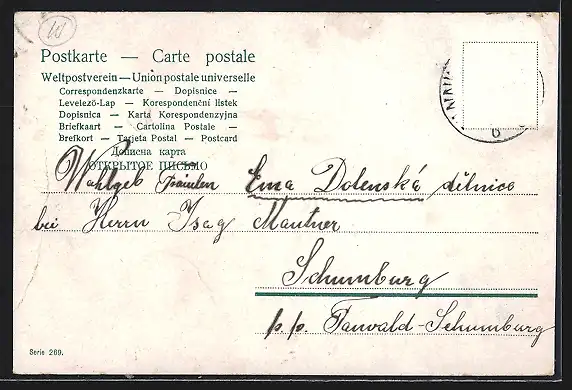 Postkarte — Carte postale
Weltpostverein — Union postale universelle
Correspondenzkarte — Dopisnice —
Levelező-Lap — Korespondenční lístek
Dopisnica — Karta Korespondenzyjna
Briefkaart — Cartolina Postale —
Brefkort — Tarjeta Postal — Postcard
Дописна карта
ОТКРЫТОЕ ПИСЬМО
Wohlgeb Fräulen Ema Dolenská dělnice
bei Herrn Isag Mautner
Schumburg
p.p. Tanwald-Schumburg
Serie 269.